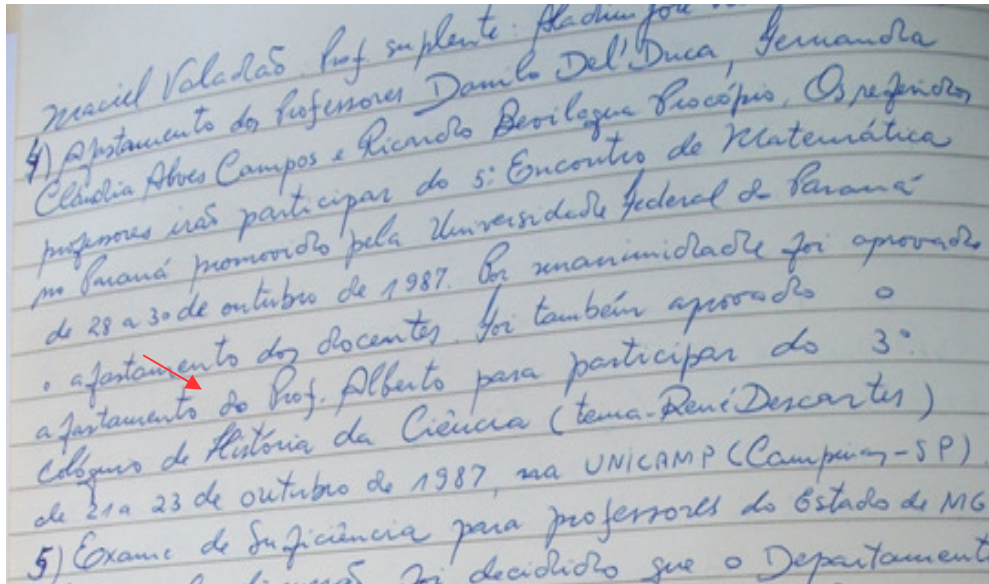 Maciel Valadão. Prof. suplente: Aladim José
4) Afastamento dos Professores Danilo Del'Duca, Fernandra
Cláudia Alves Campos e Ricardo Bevilaqua Procópio, Os referidos
professores irão participar do 5º Encontro de Matemática
no Paraná promovido pela Universidade Federal do Paraná
de 28 a 30 de outubro de 1987. Por unanimidade foi aprovado
o afastamento dos docentes. Foi também aprovado o
afastamento do Prof. Alberto para participar do 3º
Colóquio de História da Ciência (tema - René Descartes)
de 21 a 23 de outubro de 1987, na UNICAMP (Campinas-SP)
5) Exame de Suficiência para professores do Estado de MG
foi decidido que o Departament